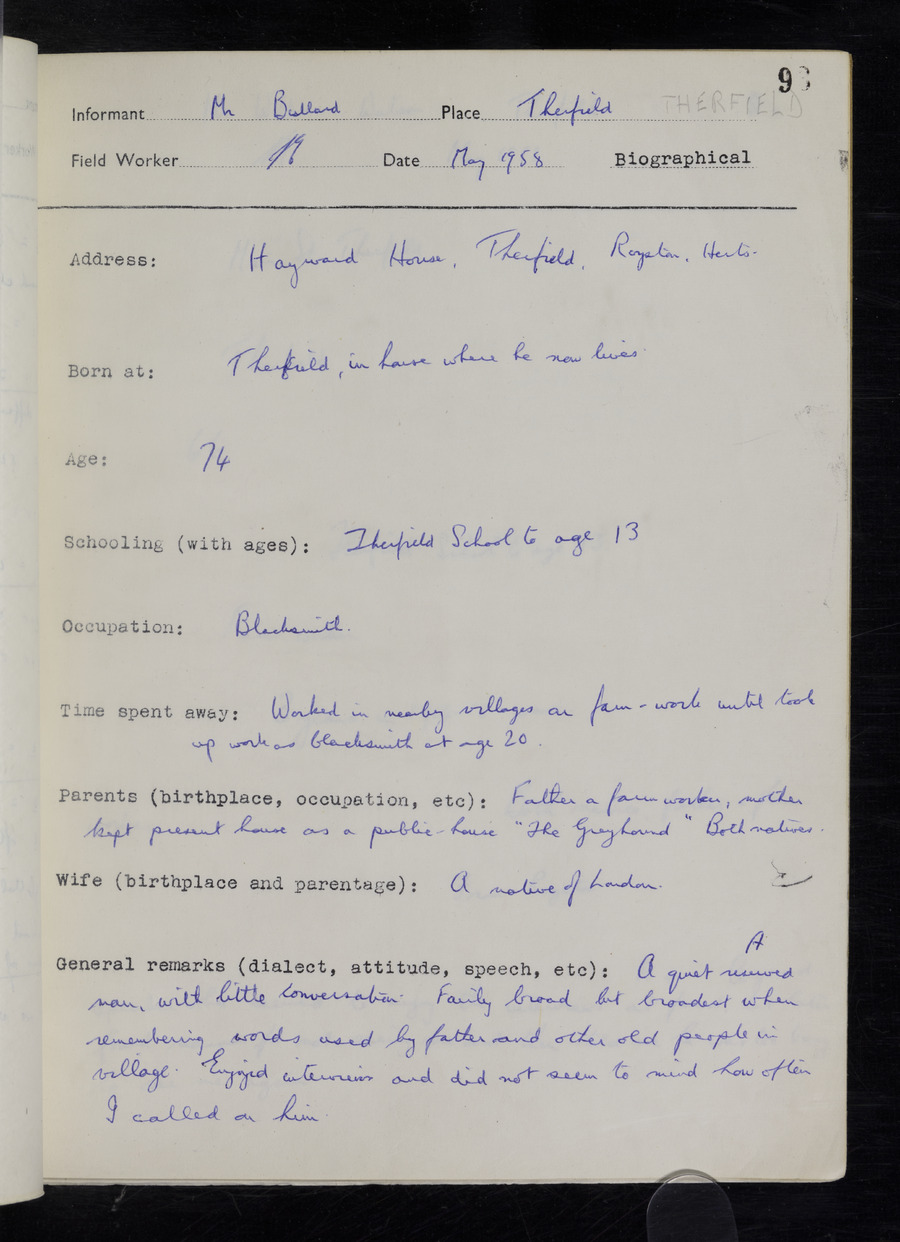 93
Informant Mr Bullard Place Therfield THERFIELD
Field Worker Date May 1958 Biographical
Address: Hayward House, Therfield, Royston, Herts.
Born at: Therfield, in house where he now lives.
Age: 74
Schooling (with ages): Therfield School to age 13
Occupation: Blacksmith.
Time spent away: Worked in nearby villages on farm-work until took
up work as blacksmith at age 20.
Parents (birthplace, occupation, etc): Father a farm worker, mother
kept present house as a public-house "The Greyhound" Both natives.
Wife (birthplace and parentage): A native of London.
A
General remarks (dialect, attitude, speech, etc): A quiet reserved
man, with little conversation. Fairly broad but broadest when
remembering words used by father and other old people in
village. Enjoyed interviews and did not seem to mind how often
I called on him.